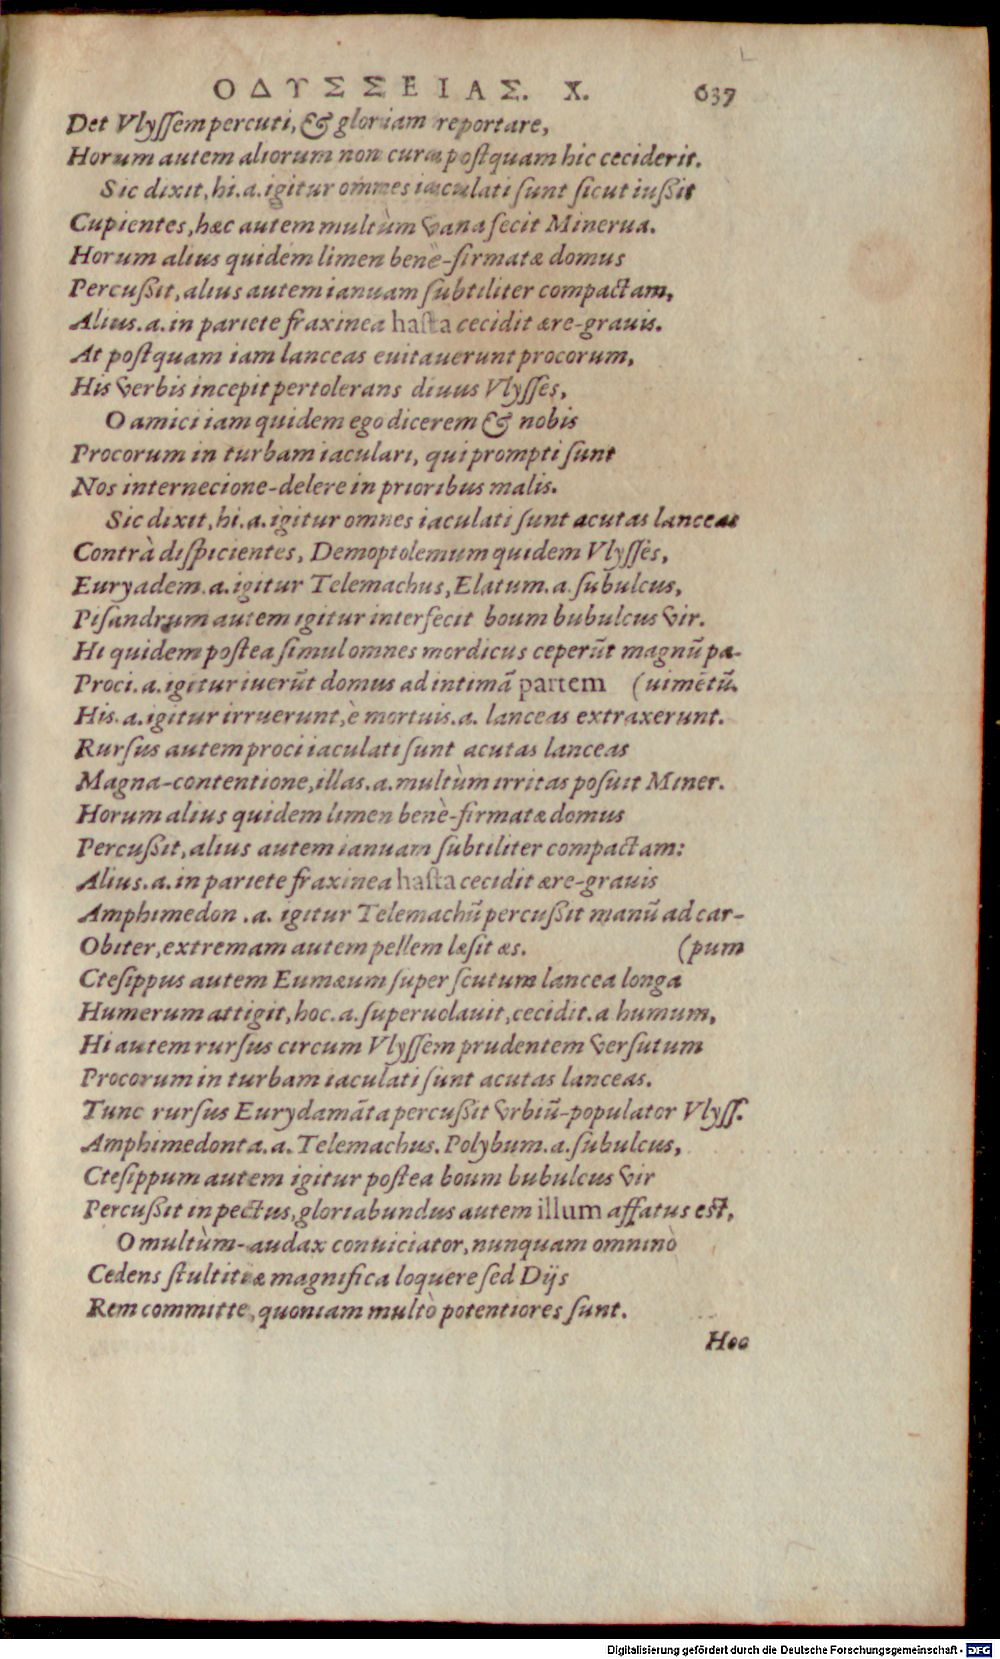 ΟΔΥΣΣΕΙΑΣ. Χ. 637
Det Vlyssem percuti, & gloriam reportare,
Horum autem aliorum non cura postquam hic ceciderit.
Sic dixit, hi.a.igitur omnes iaculati sunt sicut iussit
Cupientes, hæc autem multùm vana fecit Minerua.
Horum alius quidem limen benè-firmatæ domus
Percussit, alius autem ianuam subtiliter compactam,
Alius.a.in pariete fraxinea hasta cecidit ære-grauis.
At postquam iam lanceas euitauerunt procorum,
His verbis incepit pertolerans diuus Vlysses,
O amici iam quidem ego dicerem & nobis
Procorum in turbam iaculari, qui prompti sunt
Nos internecione-delere in prioribus malis.
Sic dixit, hi.a.igitur omnes iaculati sunt acutas lanceas
Contrà dispicientes, Demoptolemum quidem Vlysses,
Euryadem.a.igitur Telemachus, Elatum.a.subulcus,
Pisandrum autem igitur interfecit boum bubulcus vir.
Hi quidem postea simul omnes mordicus ceperũt magnũ pa-
Proci.a.igitur iuerũt domus ad intimã partem (uimētũ.
His.a.igitur irruerunt, è mortuis.a. lanceas extraxerunt.
Rursus autem proci iaculati sunt acutas lanceas
Magna-contentione, illas.a.multùm irritas posuit Miner.
Horum alius quidem limen benè-firmatæ domus
Percussit, alius autem ianuam subtiliter compactam:
Alius.a.in pariete fraxinea hasta cecidit ære-grauis
Amphimedon .a. igitur Telemachũ percussit manũ ad car-
Obiter, extremam autem pellem læsit æs. (pum
Ctesippus autem Eumæum super scutum lancea longa
Humerum attigit, hoc.a.superuolauit, cecidit.a humum,
Hi autem rursus circum Vlyssem prudentem versutum
Procorum in turbam iaculati sunt acutas lanceas.
Tunc rursus Eurydamãta percussit vrbiũ-populator Vlyss.
Amphimedonta.a.Telemachus. Polybum.a.subulcus,
Ctesippum autem igitur postea boum bubulcus vir
Percussit in pectus, gloriabundus autem illum affatus est,
O multùm-audax conuiciator, nunquam omninò
Cedens stultitiæ magnifica loquere sed Dijs
Rem committe, quoniam multò potentiores sunt.
Hoc
Digitalisierung gefördert durch die Deutsche Forschungsgemeinschaft - DFG